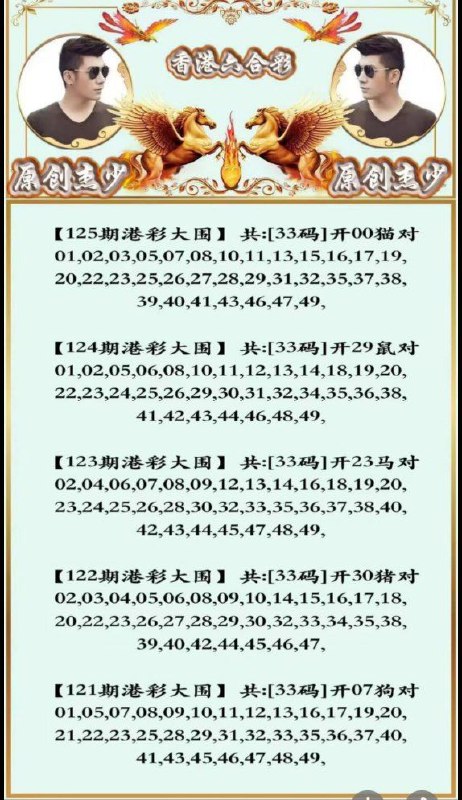 香港六合彩
原创杰少
原创杰少
【125期港彩大围】 共:[33码]开00猫对
01,02,03,05,07,08,10,11,13,15,16,17,19,
20,22,23,25,26,27,28,29,31,32,35,37,38,
39,40,41,43,46,47,49,
【124期港彩大围】 共:[33码]开29鼠对
01,02,05,06,08,10,11,12,13,14,18,19,20,
22,23,24,25,26,29,30,31,32,34,35,36,38,
41,42,43,44,46,48,49,
【123期港彩大围】 共:[33码]开23马对
02,04,06,07,08,09,12,13,14,16,18,19,20,
23,24,25,26,28,30,32,33,35,36,37,38,40,
42,43,44,45,47,48,49,
【122期港彩大围】 共:[33码]开30猪对
02,03,04,05,06,08,09,10,14,15,16,17,18,
20,22,23,26,27,28,29,30,32,33,34,35,38,
39,40,42,44,45,46,47,
【121期港彩大围】 共:[33码]开07狗对
01,05,07,08,09,10,11,12,13,16,17,19,20,
21,22,23,25,28,29,31,32,33,35,36,37,40,
41,43,45,46,47,48,49,